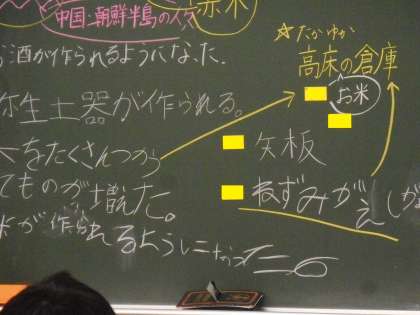 中国・朝鮮半島の人々
赤米
お酒が作られるようになった.
☆たかゆか
高床の倉庫
お米
弥生土器が作られる。
をたくさんつから
矢板
てものが増えた。
ねずみがえし
が作られるようになった。